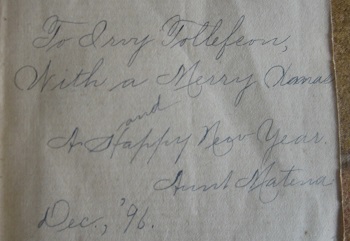 To Irvy Tollefson,
With a Merry Xmas
and
A Happy New Year.
Aunt Matena
Dec., '96.